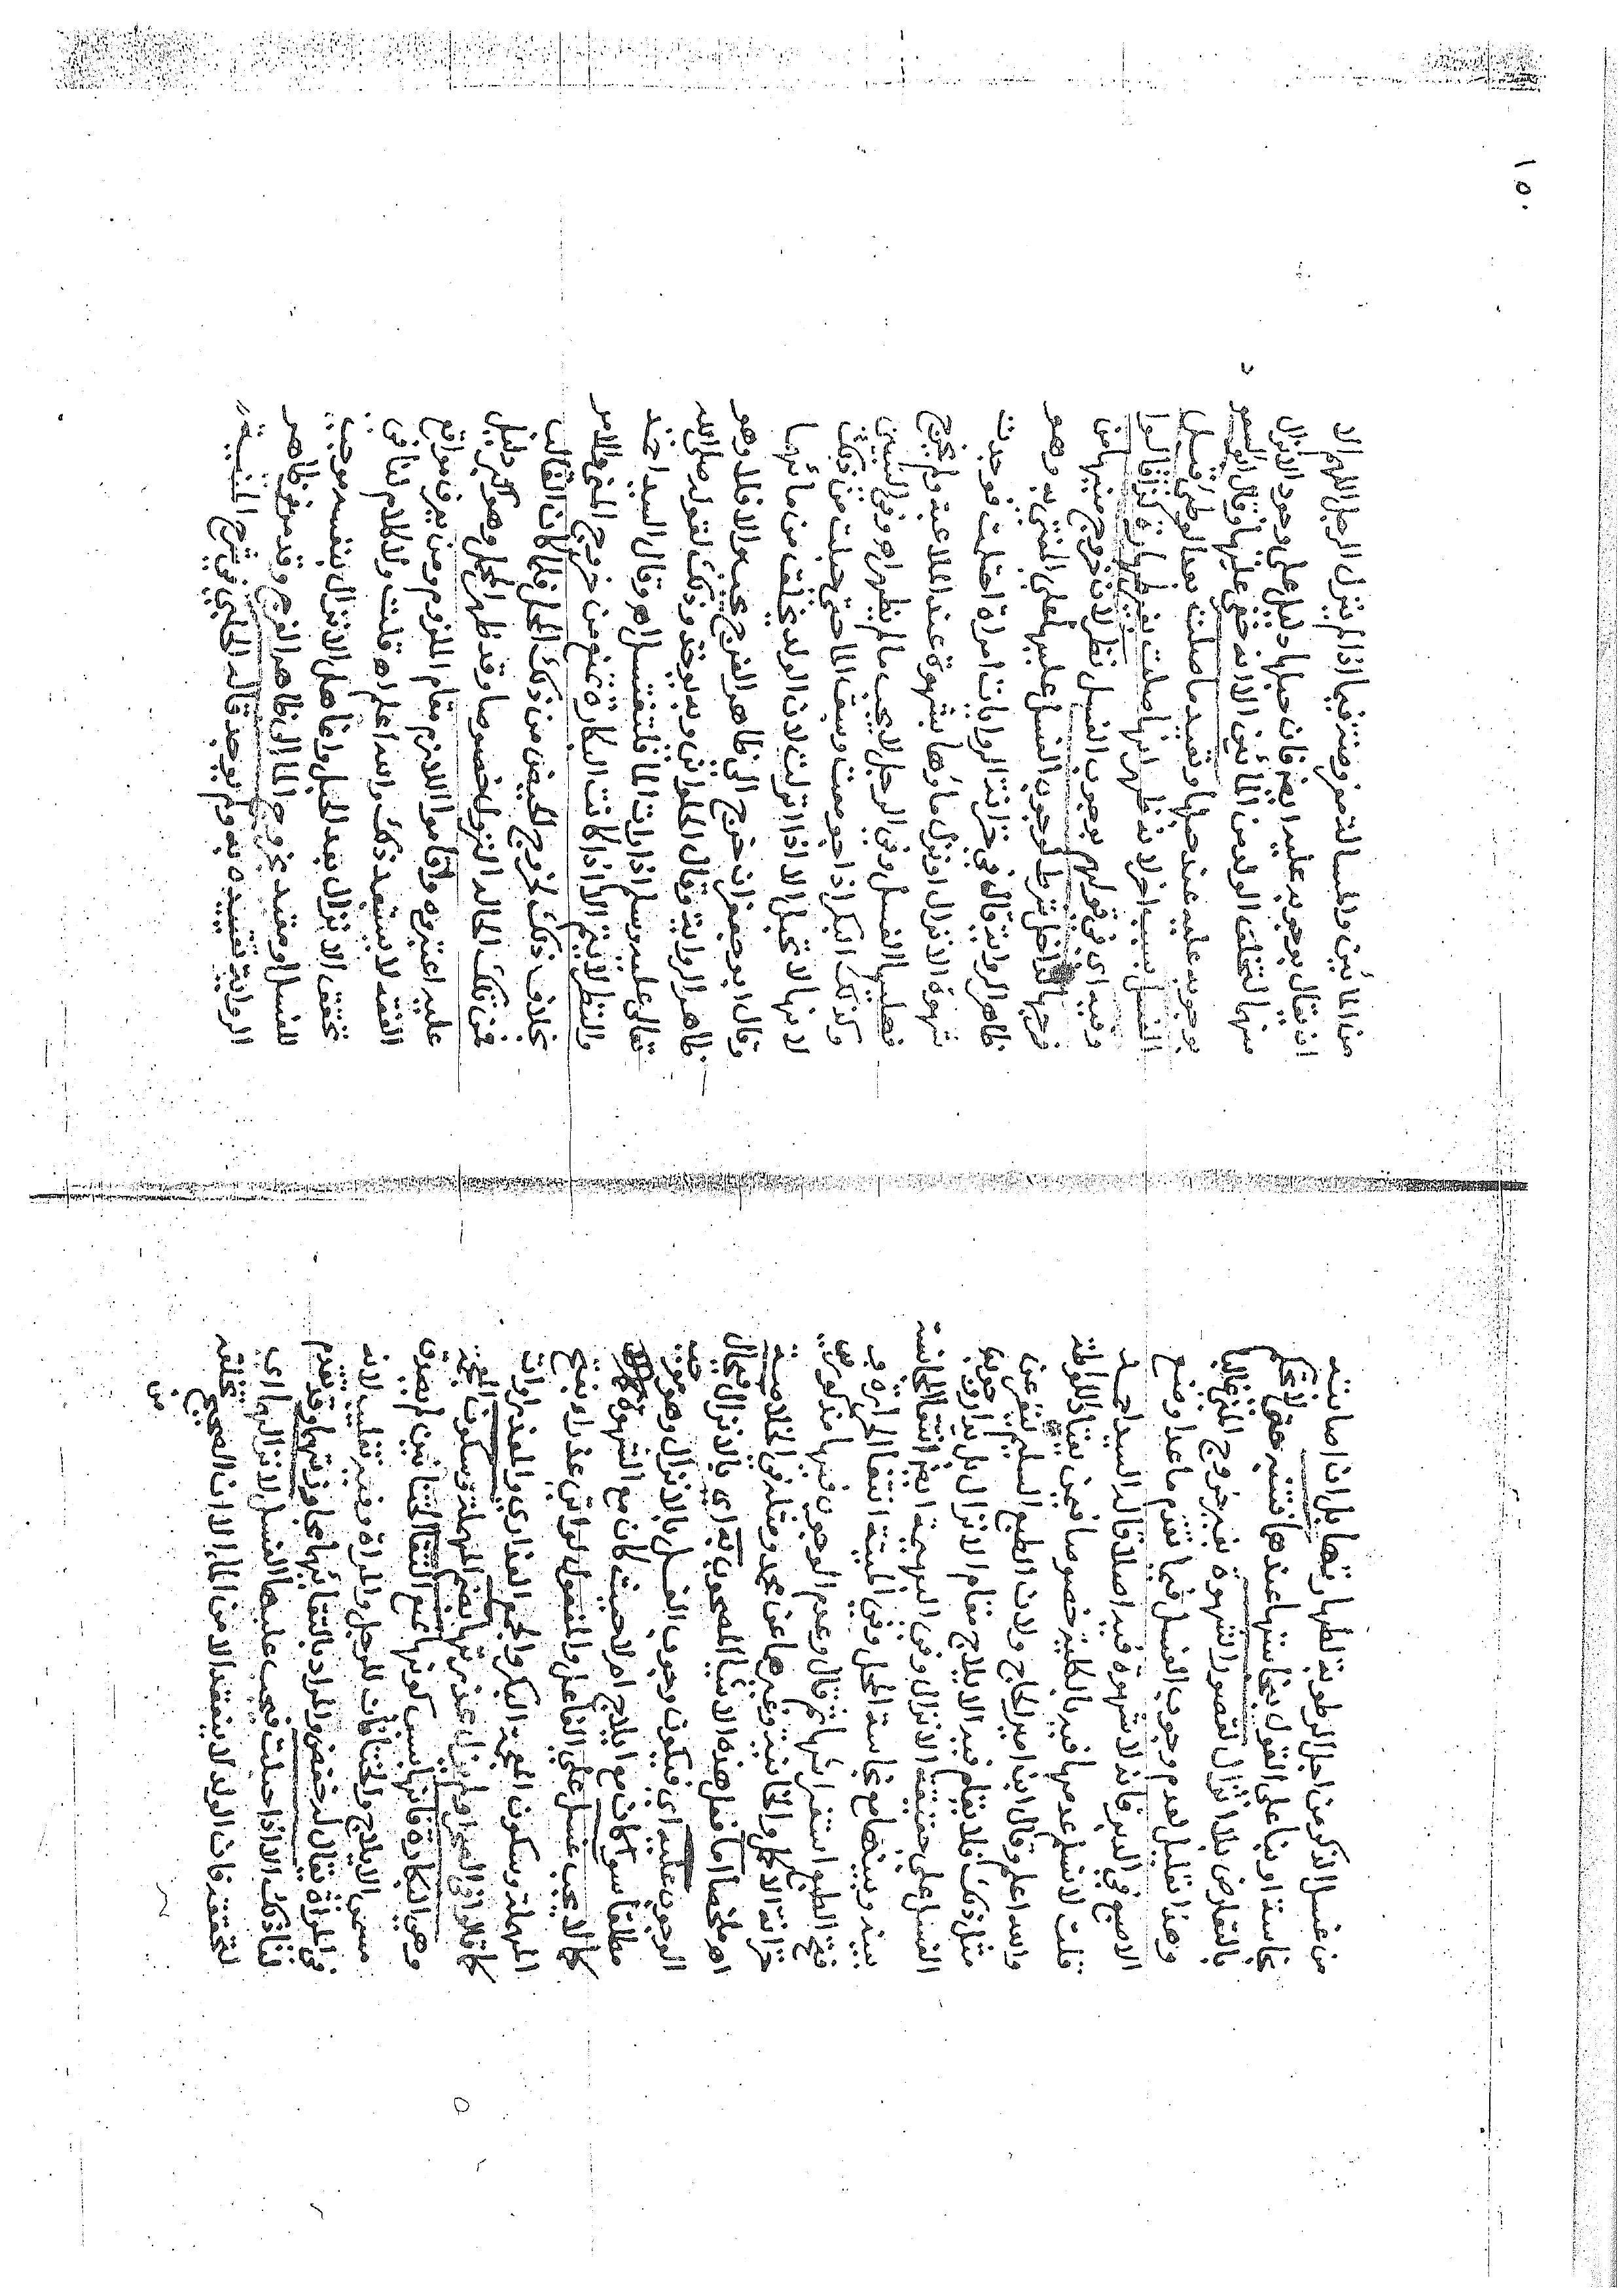 من غسل الذكر من اجل الرطوبة لطهارتها بل ان اصابته
نجاسة او بناء على القول بنجاستها عندهما فتنبه
بلا انزال لقصور الشهوة بغير خروج المني غالبا
وهذا تعليل لعدم وجوب الغسل فيما تقدم ما عدا وضع
الاصبع في الدبر فانه لا شهوة فيه اصلا قاله السيد احمد
قلت لا نسلم عدمها فيه بالكلية خصوصا فيمن يعتاد اللواطة
والله اعلم وقال ابن امير الحاج ولان الطبع السليم ينفر عن
مثل ذلك فلا يقام فيه الايلاج مقام الانزال بل يدار وجوب
الغسل على حقيقة الانزال وفي البهيمة ايضا انتفا المجانسة
بينه وبينها مع نجاسة المحل وفي الميتة انتفا الحرارة و
الطبع ثم قال وعدم الوجوب فيها مذكور في
خزانة الاكمل والخانية وغيرها عن محمد ومثله في الخلاصة
اه ملخصا اما فعل هذه الاشيا المصحوب به اي بالانزال فحال
الوجوب عليه اي فيكون وجوب الغسل بالانزال وهو موجب
مطلقا سوا كان مع ايلاج ام لا حيث كان مع الشهوة
كما لا يجب غسل على الفاعل والمفعول لو اتى عذراء بفتح
المهملة وسكون المعجمة البكر والجمع العذارى والعذراوات
كما في الصحراء ولم يزل عذرتها بضم المهملة وسكون المعجمة
وهي البكارة فانها تمنع التقا الختانين لم يصدق
مسمى الايلاج والختانان للرجل والمراة وفيه تغليب لانه
في المراة يقال له خفض والمراد بالتقائهما محاذاتهما وقد تقدم
ذلك الا اذا حبلت فيجب عليها الغسل لانزالها اي
لتحققه فان الولد لا ينعقد الا من الماء الا ان الصحيح تخلقه
من
١٥٠
من المائين والمسالة مفروضة فيما اذا لم ينزل الرجل اللهم الا
ان يقال بوجوبه عليه ايضا فان حبلها دليل على وجود الانزال
منهما لتخلق الولد من المائين الا انه خفي عليهما وقال
بوجوبه عليه عند حبلها وتعيد ما صلت بعد الوطء قبل
الغسل بسبب اخر لانه ظهر انها صلت بغير طهارة
وفيه اي في قولهم بوجوب الغسل نظر لان خروج منيها من
فرجها الداخل شرط لوجوب الغسل عليها على المفتى به وهو
ظاهر الرواية قال في خزانة الروايات امراة احتلمت فوجدت
شهوة الانزال او نزل ماؤها بشهوة عند الملاعبة ولم يخرج
فعليها الغسل وفي الرجل لا يجب ما لم يظهر اه وفي
وكذلك البكر اذا جومعت وسبق الماء حتى حبلت من ذلك
لانها لا تحبل الا اذا انزلت لان الولد يخلق من مائهما
وقال ابو جعفر ان خرج الى ظاهر الفرج يجب والا فلا وهو
ظاهر الرواية وقال الحلواني وبه يؤخذ وذلك لقوله صلى الله
تعالى عليه وسلم اذا رات الماء فلتغتسل اه وقال السيد احمد
والنظر لا يتم الا اذا كانت البكارة تمنع من خروج المني والامر
بخلاف ذلك لخروج الحيض من ذلك المحل فلما كان الغالب
في تلك الحالة النزول خصوصا وقد ظهر الحبل وهو اكبر دليل
عليه اعتبروه واقاموا اللازم مقام الملزوم ومن يعرف مواقع
الفقه لا يستبعد ذلك والله اعلم اه قلت والكلام لنا في
تحقق الانزال بعد الحبل وانما هل الانزال بنفسه موجب
للغسل او مقيد بخروج الماء الى ظاهر الفرج وقد مر في ظاهر
الرواية تقييده به ولم يوجد قاله الحلبي في شرح المنية